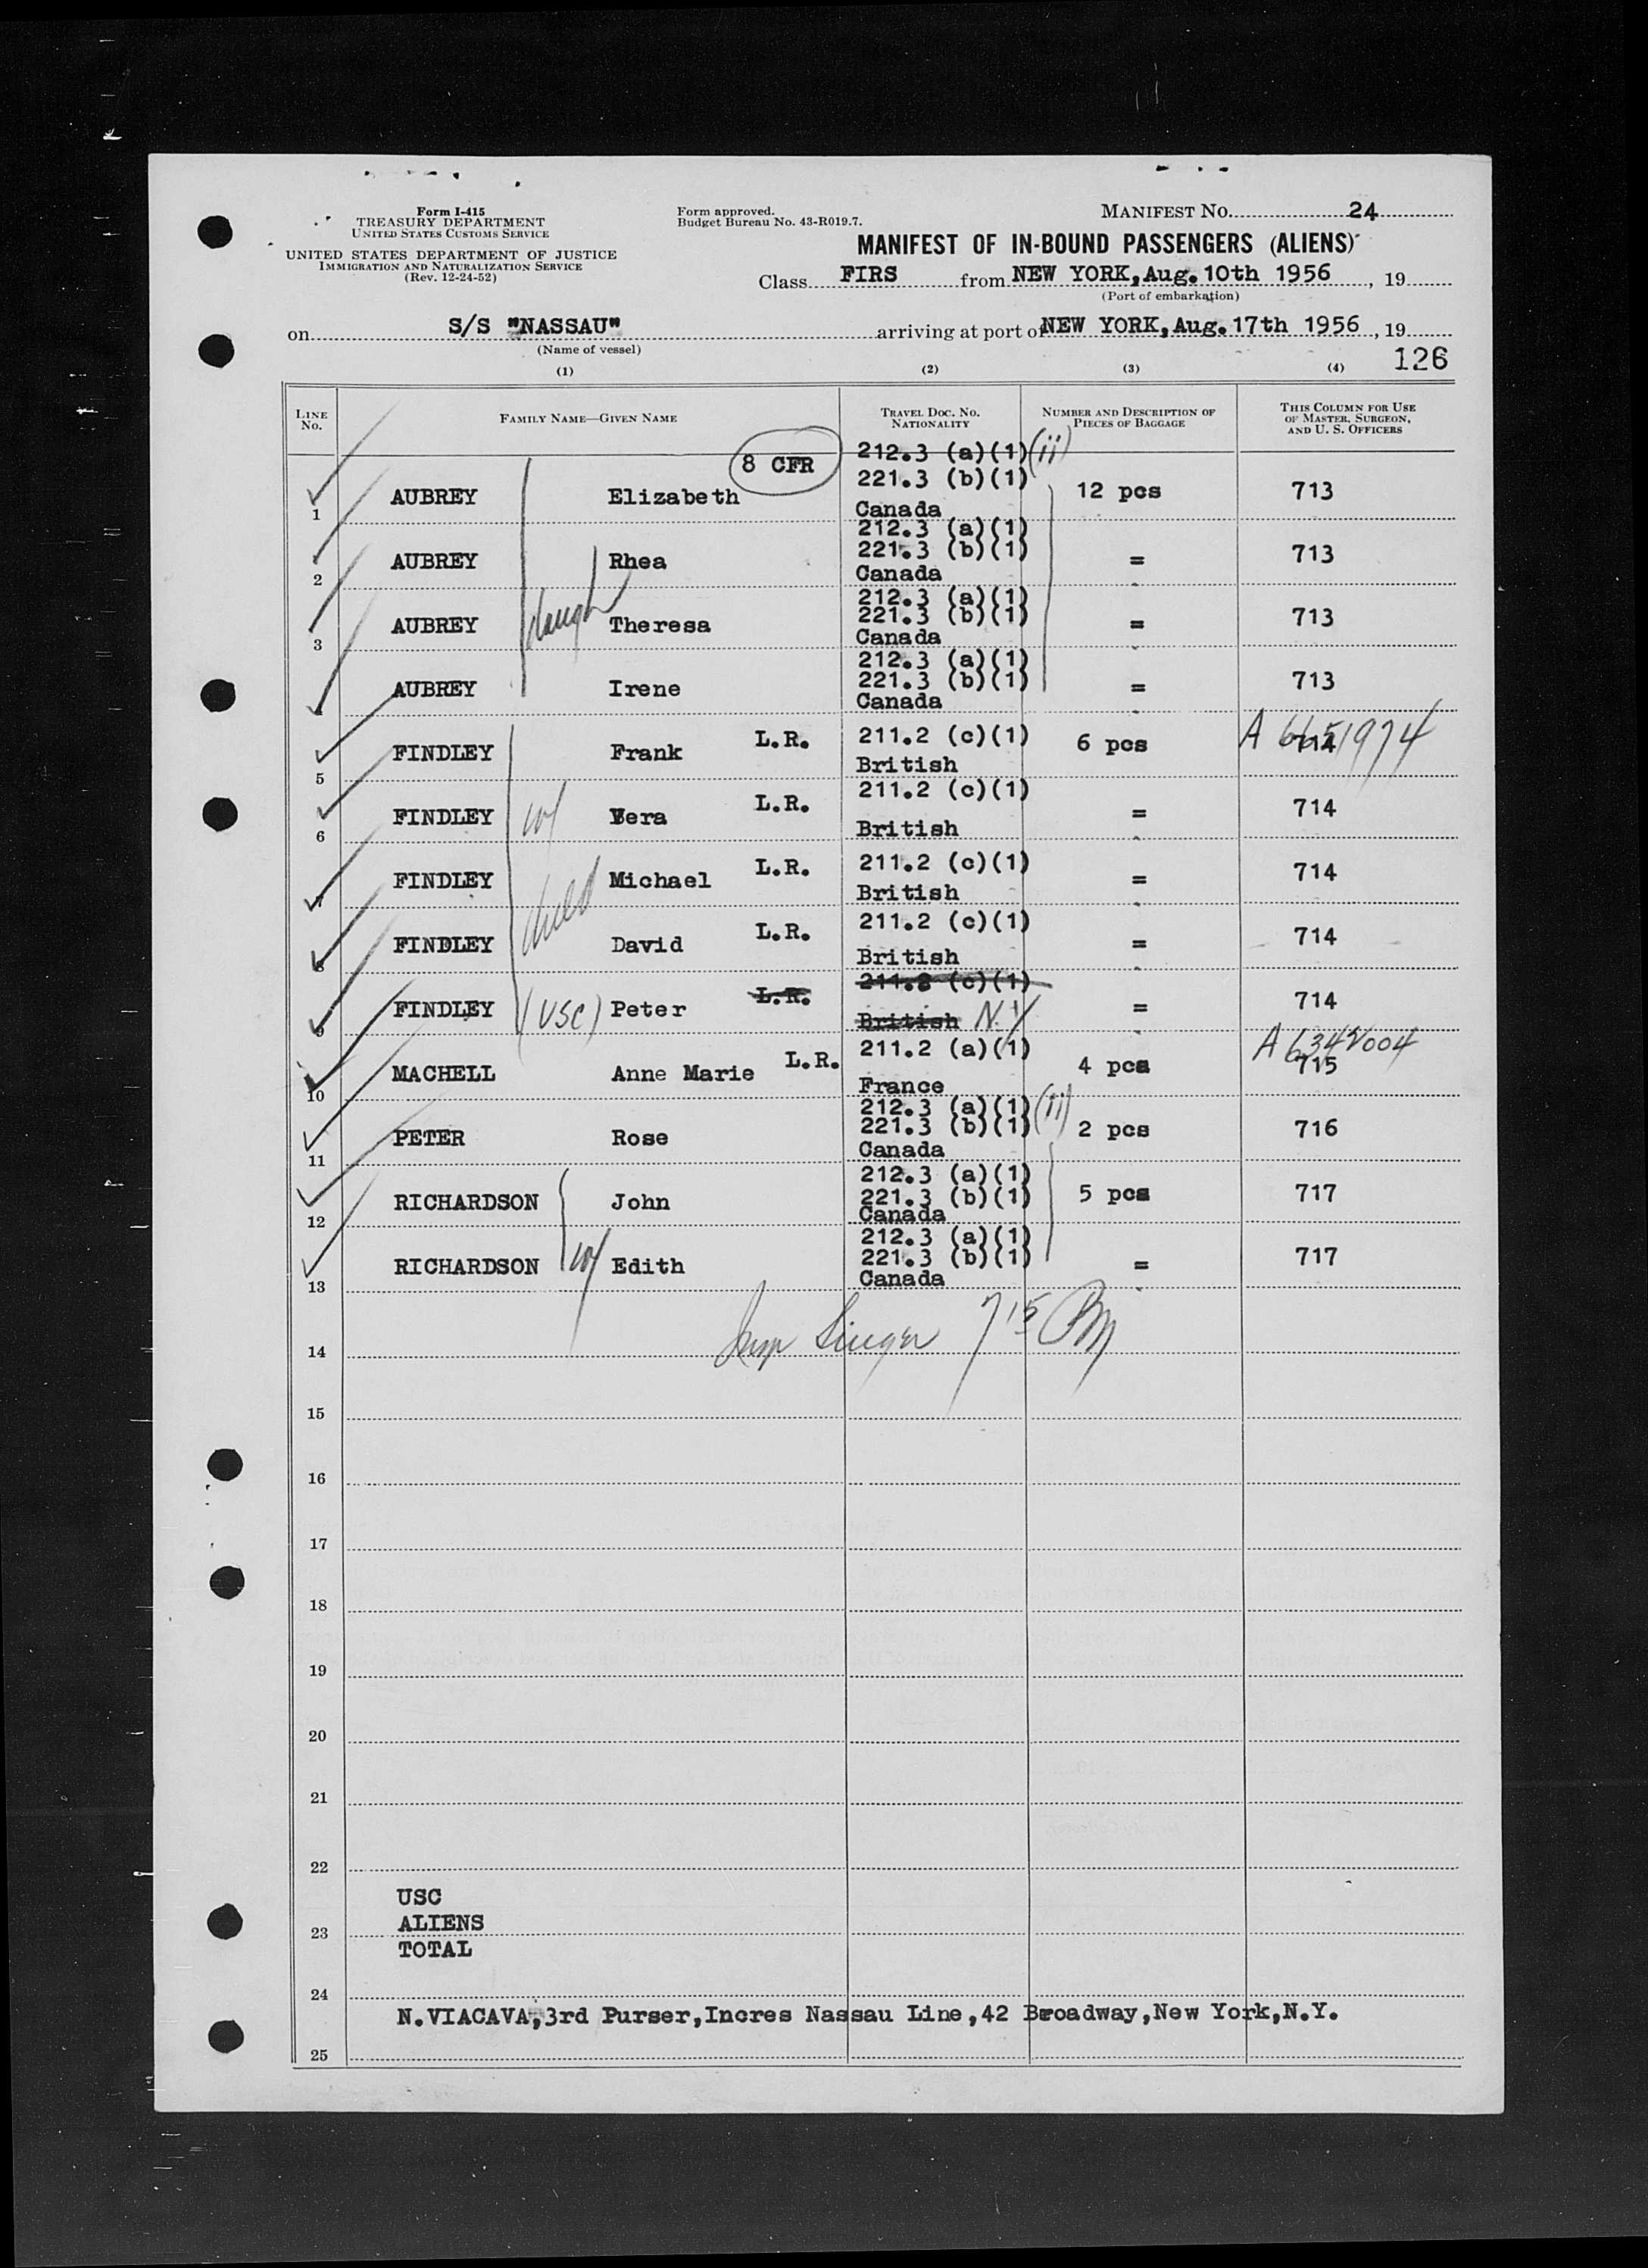 Form I-415
TREASURY DEPARTMENT
UNITED STATES CUSTOMS SERVICE
UNITED STATES DEPARTMENT OF JUSTICE
IMMIGRATION AND NATURALIZATION SERVICE
(Rev. 12-24-52)
Form approved.
Budget Bureau No. 43-R019.7.
MANIFEST No. 24
MANIFEST OF IN-BOUND PASSENGERS (ALIENS)
Class FIRS from NEW YORK, Aug. 10th 1956, 19
(Port of embarkation)
on S/S "NASSAU" arriving at port of NEW YORK, Aug. 17th 1956, 19
(Name of vessel)
126
(1) (2) (3) (4)
LINE No. FAMILY NAME—GIVEN NAME TRAVEL DOC. NO. NATIONALITY NUMBER AND DESCRIPTION OF PIECES OF BAGGAGE THIS COLUMN FOR USE OF MASTER, SURGEON, AND U. S. OFFICERS
8 CFR 212.3 (a)(1)(ii)
221.3 (b)(1)
1 AUBREY Elizabeth Canada 12 pcs 713
212.3 (a)(1)
221.3 (b)(1)
2 AUBREY Rhea Canada = 713
212.3 (a)(1)
221.3 (b)(1)
3 AUBREY daugh Theresa Canada = 713
212.3 (a)(1)
221.3 (b)(1)
AUBREY Irene Canada = 713
211.2 (c)(1) A 6651974
5 FINDLEY Frank L.R. British 6 pcs 714
211.2 (c)(1)
6 FINDLEY w/ Vera L.R. British = 714
211.2 (c)(1)
7 FINDLEY Michael L.R. British = 714
child
211.2 (c)(1)
8 FINDLEY David L.R. British = 714
211.2 (c)(1)
9 FINDLEY (USC) Peter L.R. British N.Y = 714
211.2 (a)(1)
10 MACHELL Anne Marie L.R. France 4 pcs 715
212.3 (a)(1)(ii)
221.3 (b)(1)
11 PETER Rose Canada 2 pcs 716
212.3 (a)(1)
221.3 (b)(1)
12 RICHARDSON John Canada 5 pcs 717
212.3 (a)(1)
221.3 (b)(1)
13 RICHARDSON w/ Edith Canada = 717
Singer 7 15 PM
14
15
16
17
18
19
20
21
22
USC
ALIENS
23
TOTAL
24
N.VIACAVA,3rd Purser,Incres Nassau Line,42 Broadway,New York,N.Y.
25